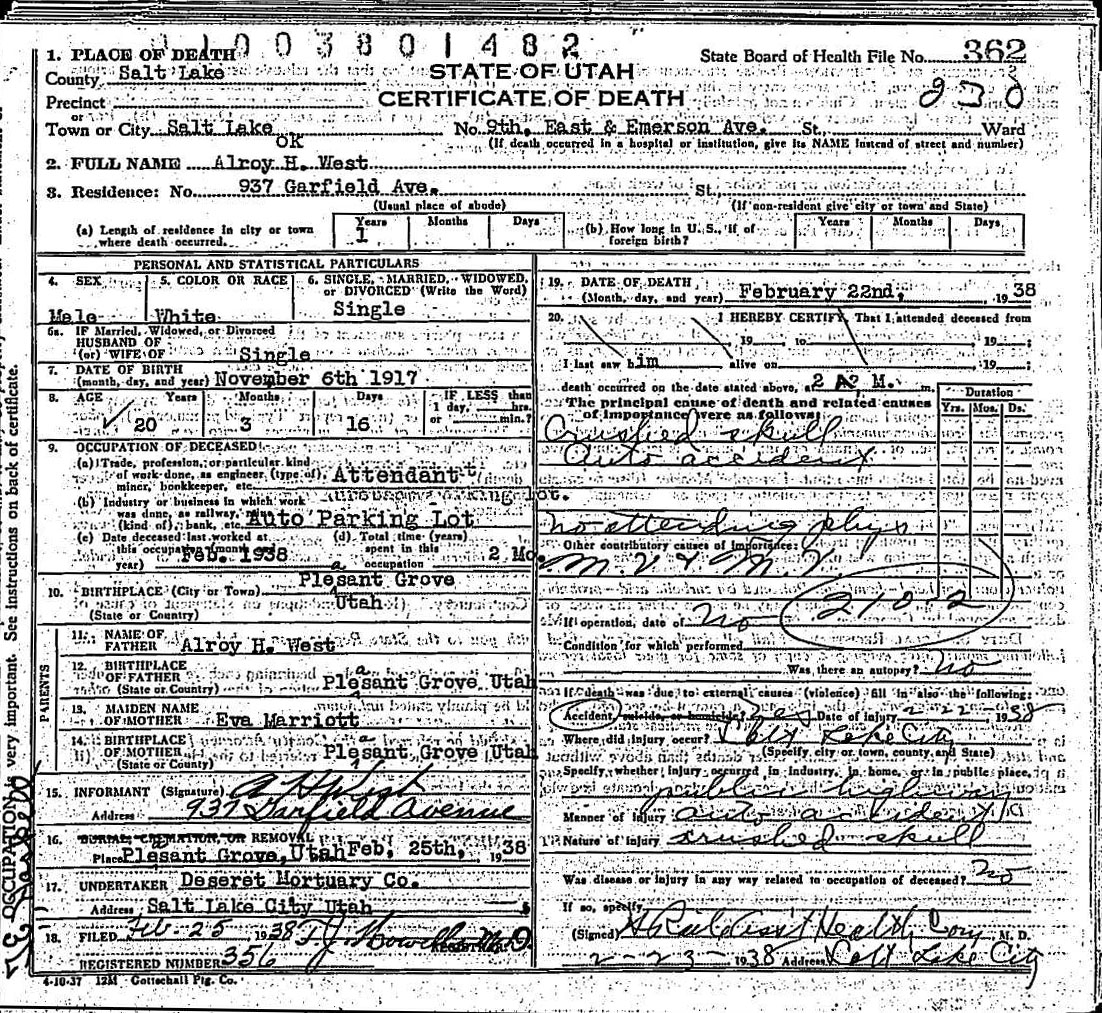 11003801482
1. PLACE OF DEATH
State Board of Health File No. 362
County Salt Lake
STATE OF UTAH
Precinct
CERTIFICATE OF DEATH
230
or
Town or City Salt Lake No. 9th. East & Emerson Ave. St. Ward
OK
(If death occurred in a hospital or institution, give its NAME instead of street and number)
2. FULL NAME Alroy H. West
3. Residence: No. 937 Garfield Ave. St.
(Usual place of abode) (If non-resident give city or town and State)
(a) Length of residence in city or town where death occurred. Years 1 Months Days
(b) How long in U. S., if of foreign birth? Years Months Days
PERSONAL AND STATISTICAL PARTICULARS
4. SEX Male
5. COLOR OR RACE White
6. SINGLE, MARRIED, WIDOWED, or DIVORCED (Write the Word) Single
6a. IF Married, Widowed, or Divorced
HUSBAND OF
(or) WIFE OF Single
7. DATE OF BIRTH
(month, day, and year) November 6th 1917
8. AGE Years 20 Months 3 Days 16 IF LESS than 1 day, hrs. or min.?
9. OCCUPATION OF DECEASED
(a) Trade, profession, or particular kind of work done, as engineer (type of), miner, bookkeeper, etc. Attendant
(b) Industry or business in which work was done, as railway, (kind of), bank, etc. Auto Parking Lot
lot.
(c) Date deceased last worked at this occupation (month year) Feb. 1938
(d) Total time (years) spent in this occupation 2 Mo.
10. BIRTHPLACE (City or Town) Plesant Grove
a
(State or Country) Utah
PARENTS
11. NAME OF FATHER Alroy H. West
12. BIRTHPLACE OF FATHER (State or Country) Plesant Grove Utah
a
13. MAIDEN NAME OF MOTHER Eva Marriott
14. BIRTHPLACE OF MOTHER (State or Country) Plesant Grove Utah
a
15. INFORMANT (Signature) A H West
Address 937 Garfield Avenue
16. BURIAL CREMATION, OR REMOVAL
Place Plesant Grove, Utah Feb, 25th, 1938
a
17. UNDERTAKER Deseret Mortuary Co.
Address Salt Lake City Utah
18. FILED Feb-25 1938 T. J. Howells M.D.
REGISTERED NUMBER 356
4-10-37 12M Gottschall Ptg. Co.
19. DATE OF DEATH
(Month, day, and year) February 22nd, 1938
20. I HEREBY CERTIFY That I attended deceased from
, 19 to , 19 ;
I last saw him alive on , 19 ;
death occurred on the date stated above, a 2 A. M. m.
The principal cause of death and related causes of importance were as follows:
Duration
Yrs. Mos. Ds.
Crushed skull
Auto accident
no attending phys
Other contributory causes of importance:
M.V & M.V
210-2
If operation, date of No
Condition for which performed
Was there an autopsy? No
If death was due to external causes (violence) fill in also the following:
Accident, suicide, or homicide? yes Date of injury 2-22- 1938
Where did injury occur? Salt Lake City
(Specify city or town, county, and State)
Specify whether injury occurred in industry, in home, or in public place.
public highway
Manner of injury auto accident
Nature of injury crushed skull
Was disease or injury in any way related to occupation of deceased? No
If so, specify
(Signed) Health Com, M. D.
2-23- 1938 Address Salt Lake City
OCCUPATION is very important. See instructions on back of certificate.